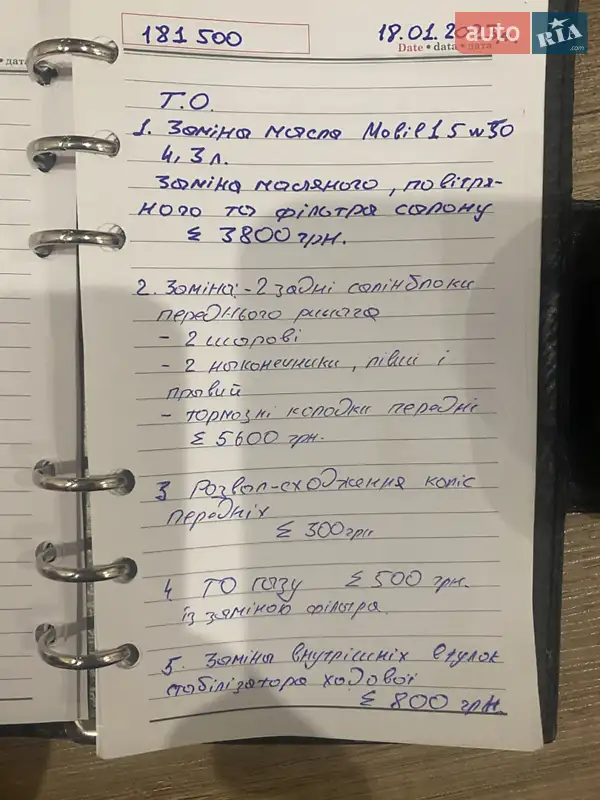 181 500
18.01.2
auto RIA .com
Date • data • дата
• дата
Т.О.
1. Заміна масла Mobil 1 5w30
4,3 л.
Заміна масляного, повітря-
ного та фільтра салону
Σ 3800 грн.
2. Заміна: - 2 задні салінблоки
переднього ричага
- 2 шарові
- 2 наконечники, лівий і
правий
- тормозні колодки передні
Σ 5600 грн.
3 Розвал-сходження коліс
передніх
Σ 300 грн
4 ТО газу Σ 500 грн.
із заміною фільтра.
5. Заміна внутрішніх втулок
стабілізатора ходової
Σ 800 грн.